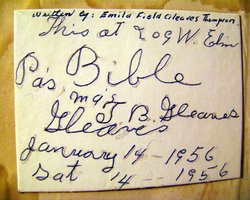 Written by: Emila Field Gleaves Thompson
This at 209 W. Elm
Pa's Bible
maj
J. B. Gleaves
Gleaves
January 14 - 1956
Sat 14 - - 1956